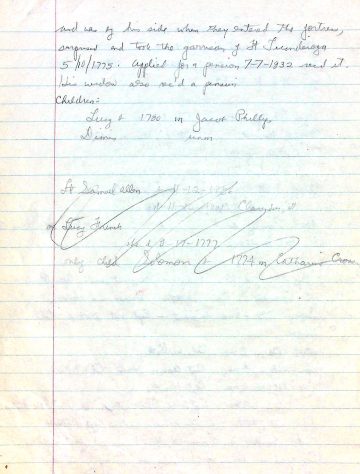 and was by his side when they entered the fortress,
surprised and took the garrison of Ft Ticonderoga
5/10/1775. Applied for a pension 7-7-1932 rec'd it.
His widow also rec'd a pension
Children:
Lucy b 1780 m Jacob Phillips
unm
Samuel Allen
m Lucy French
d 9-17-1777
only child Solomon b 1774 m Catharine Crow